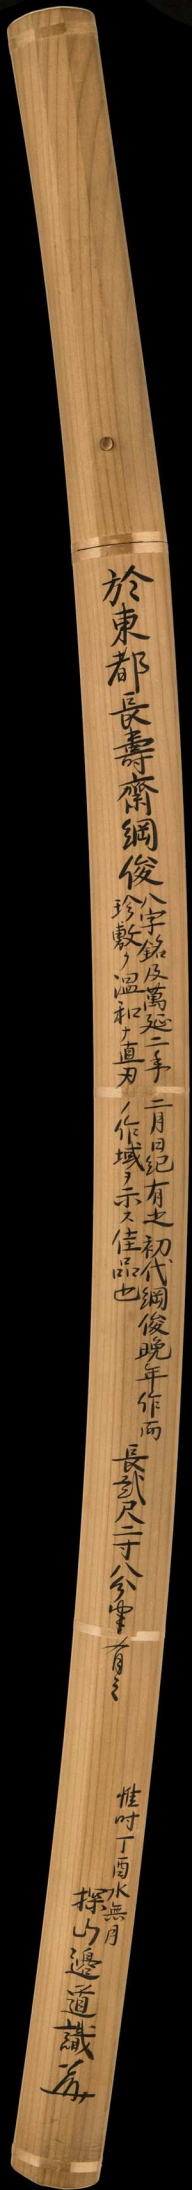 於東都長壽齋綱俊
八字銘及萬延二年二月日紀有之初代綱俊晩年作而
珍敷ク温和ナ直刃ノ作域ヲ示ス佳品也
長貮尺二寸八分半有之
惟时丁酉水無月
探山邉道識